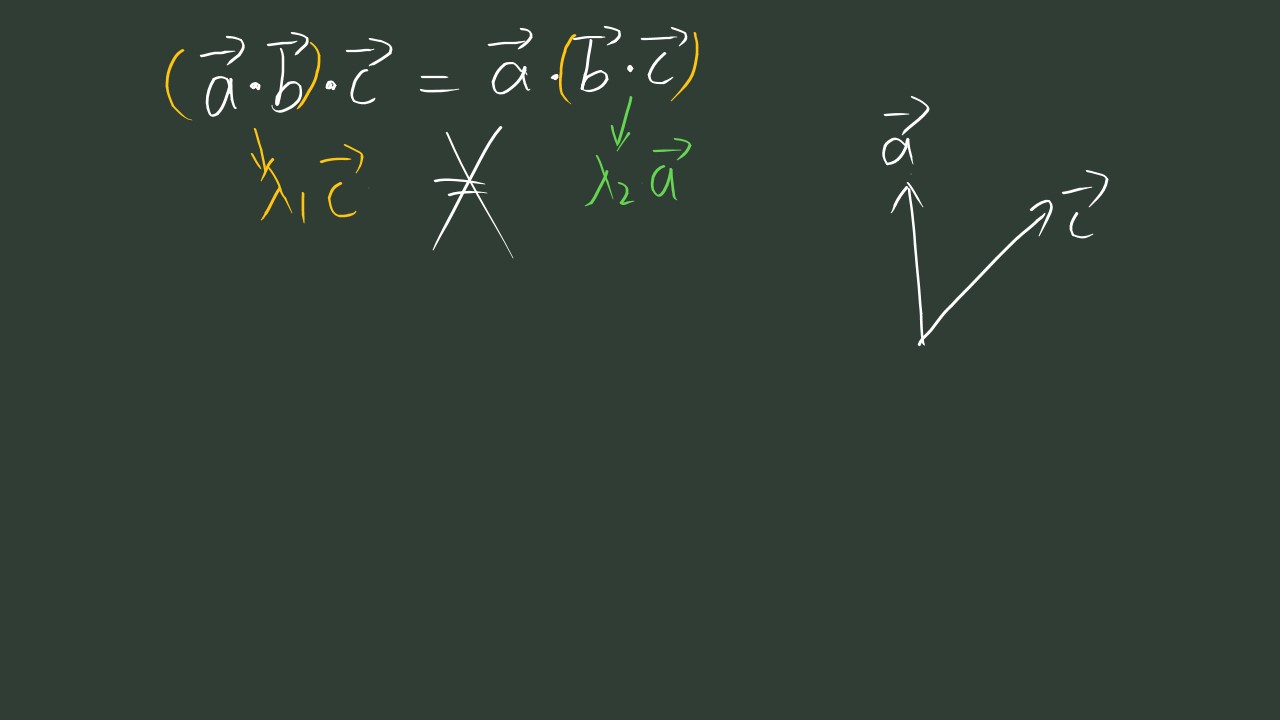 (a⃗·b⃗)·c⃗ = a⃗·(b⃗·c⃗)
λ₁c⃗ ≠ λ₂a⃗
a⃗
c⃗